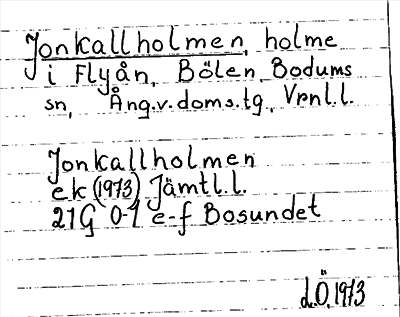 Jonkallholmen, holme
i Flyån, Bölen, Bodums
sn, Ång.v.doms.tg, Vrnl.l.
Jonkallholmen
ek (1973) Jämtl.l.
21G 0-1 e-f Bosundet
d.Ö. 1973